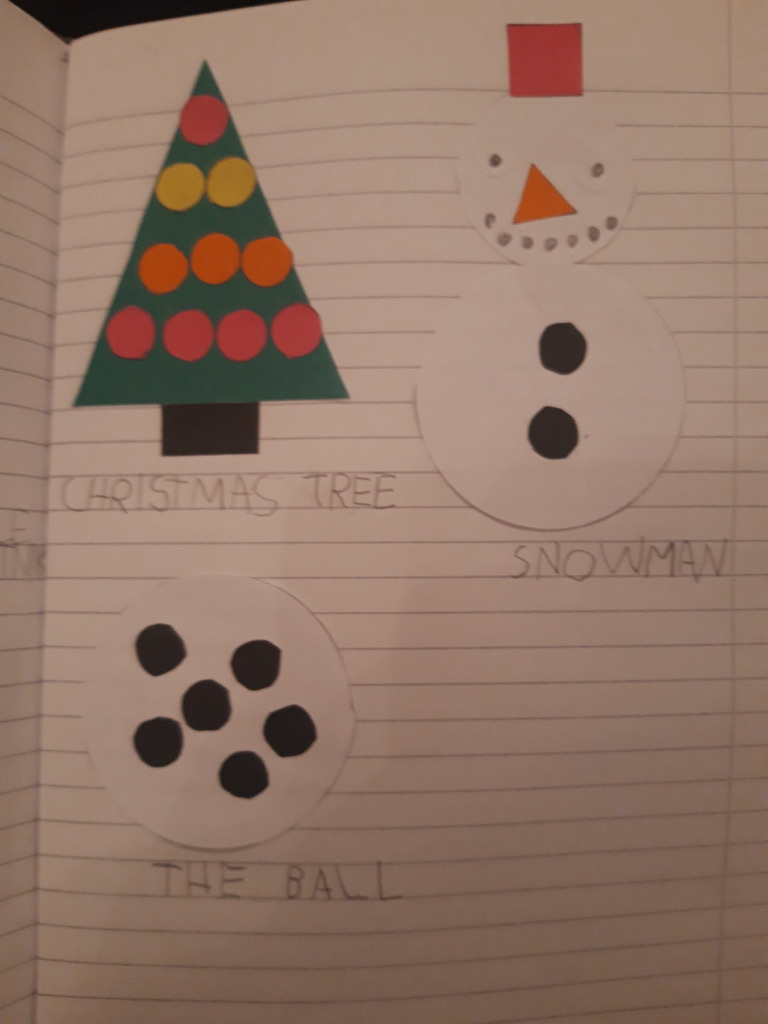 CHRISTMAS TREE
SNOWMAN
THE BALL